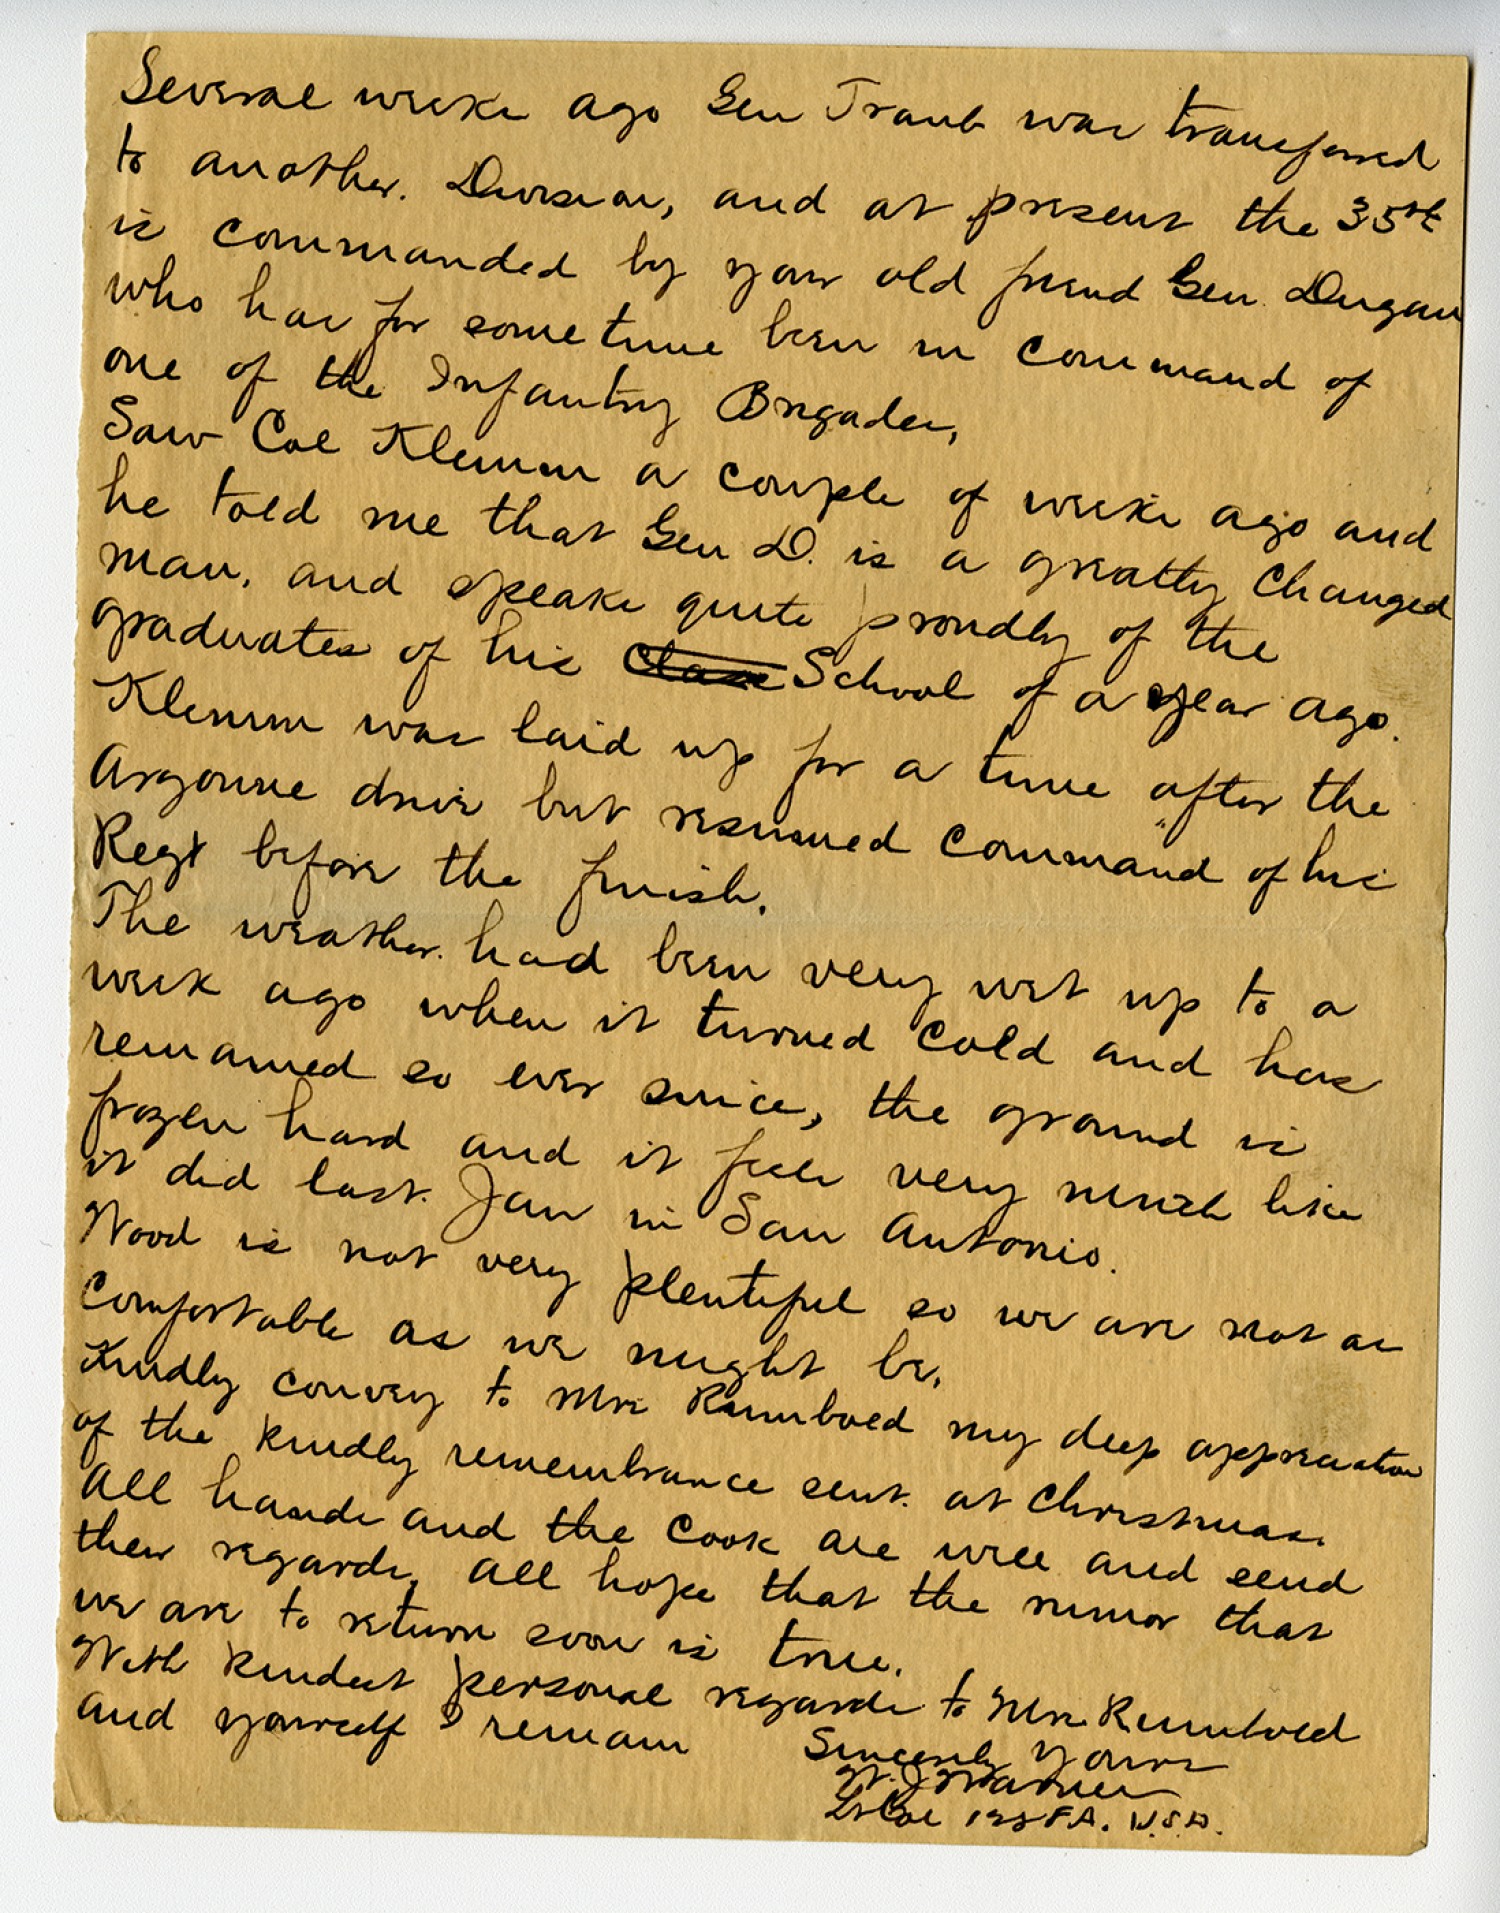 Several weeks ago Gen Traub was transferred
to another. Division, and at present the 35th
is commanded by your old friend Gen Dugan
who has for some time been in command of
one of the Infantry Brigades,
Saw Col Klemm a couple of weeks ago and
he told me that Gen D. is a greatly changed
man, and speaks quite proudly of the
graduates of his Class School of a year ago.
Klemm was laid up for a time after the
Argonne drive but resumed command of his
Regt before the finish.
The weather had been very wet up to a
week ago when it turned cold and has
remained so ever since, the ground is
frozen hard and it feels very much like
it did last Jan in San Antonio.
Wood is not very plentiful so we are not as
comfortable as we might be.
Kindly convey to Mrs Rumbold my deep appreciation
of the kindly remembrance sent at Christmas.
All hands and the cook are well and send
their regards, all hope that the rumor that
we are to return soon is true.
With kindest personal regards to Mrs Rumbold
and yourself I remain
Sincerely Yours
W. J Warner
Lt Col 128 F.A. U.S.A.